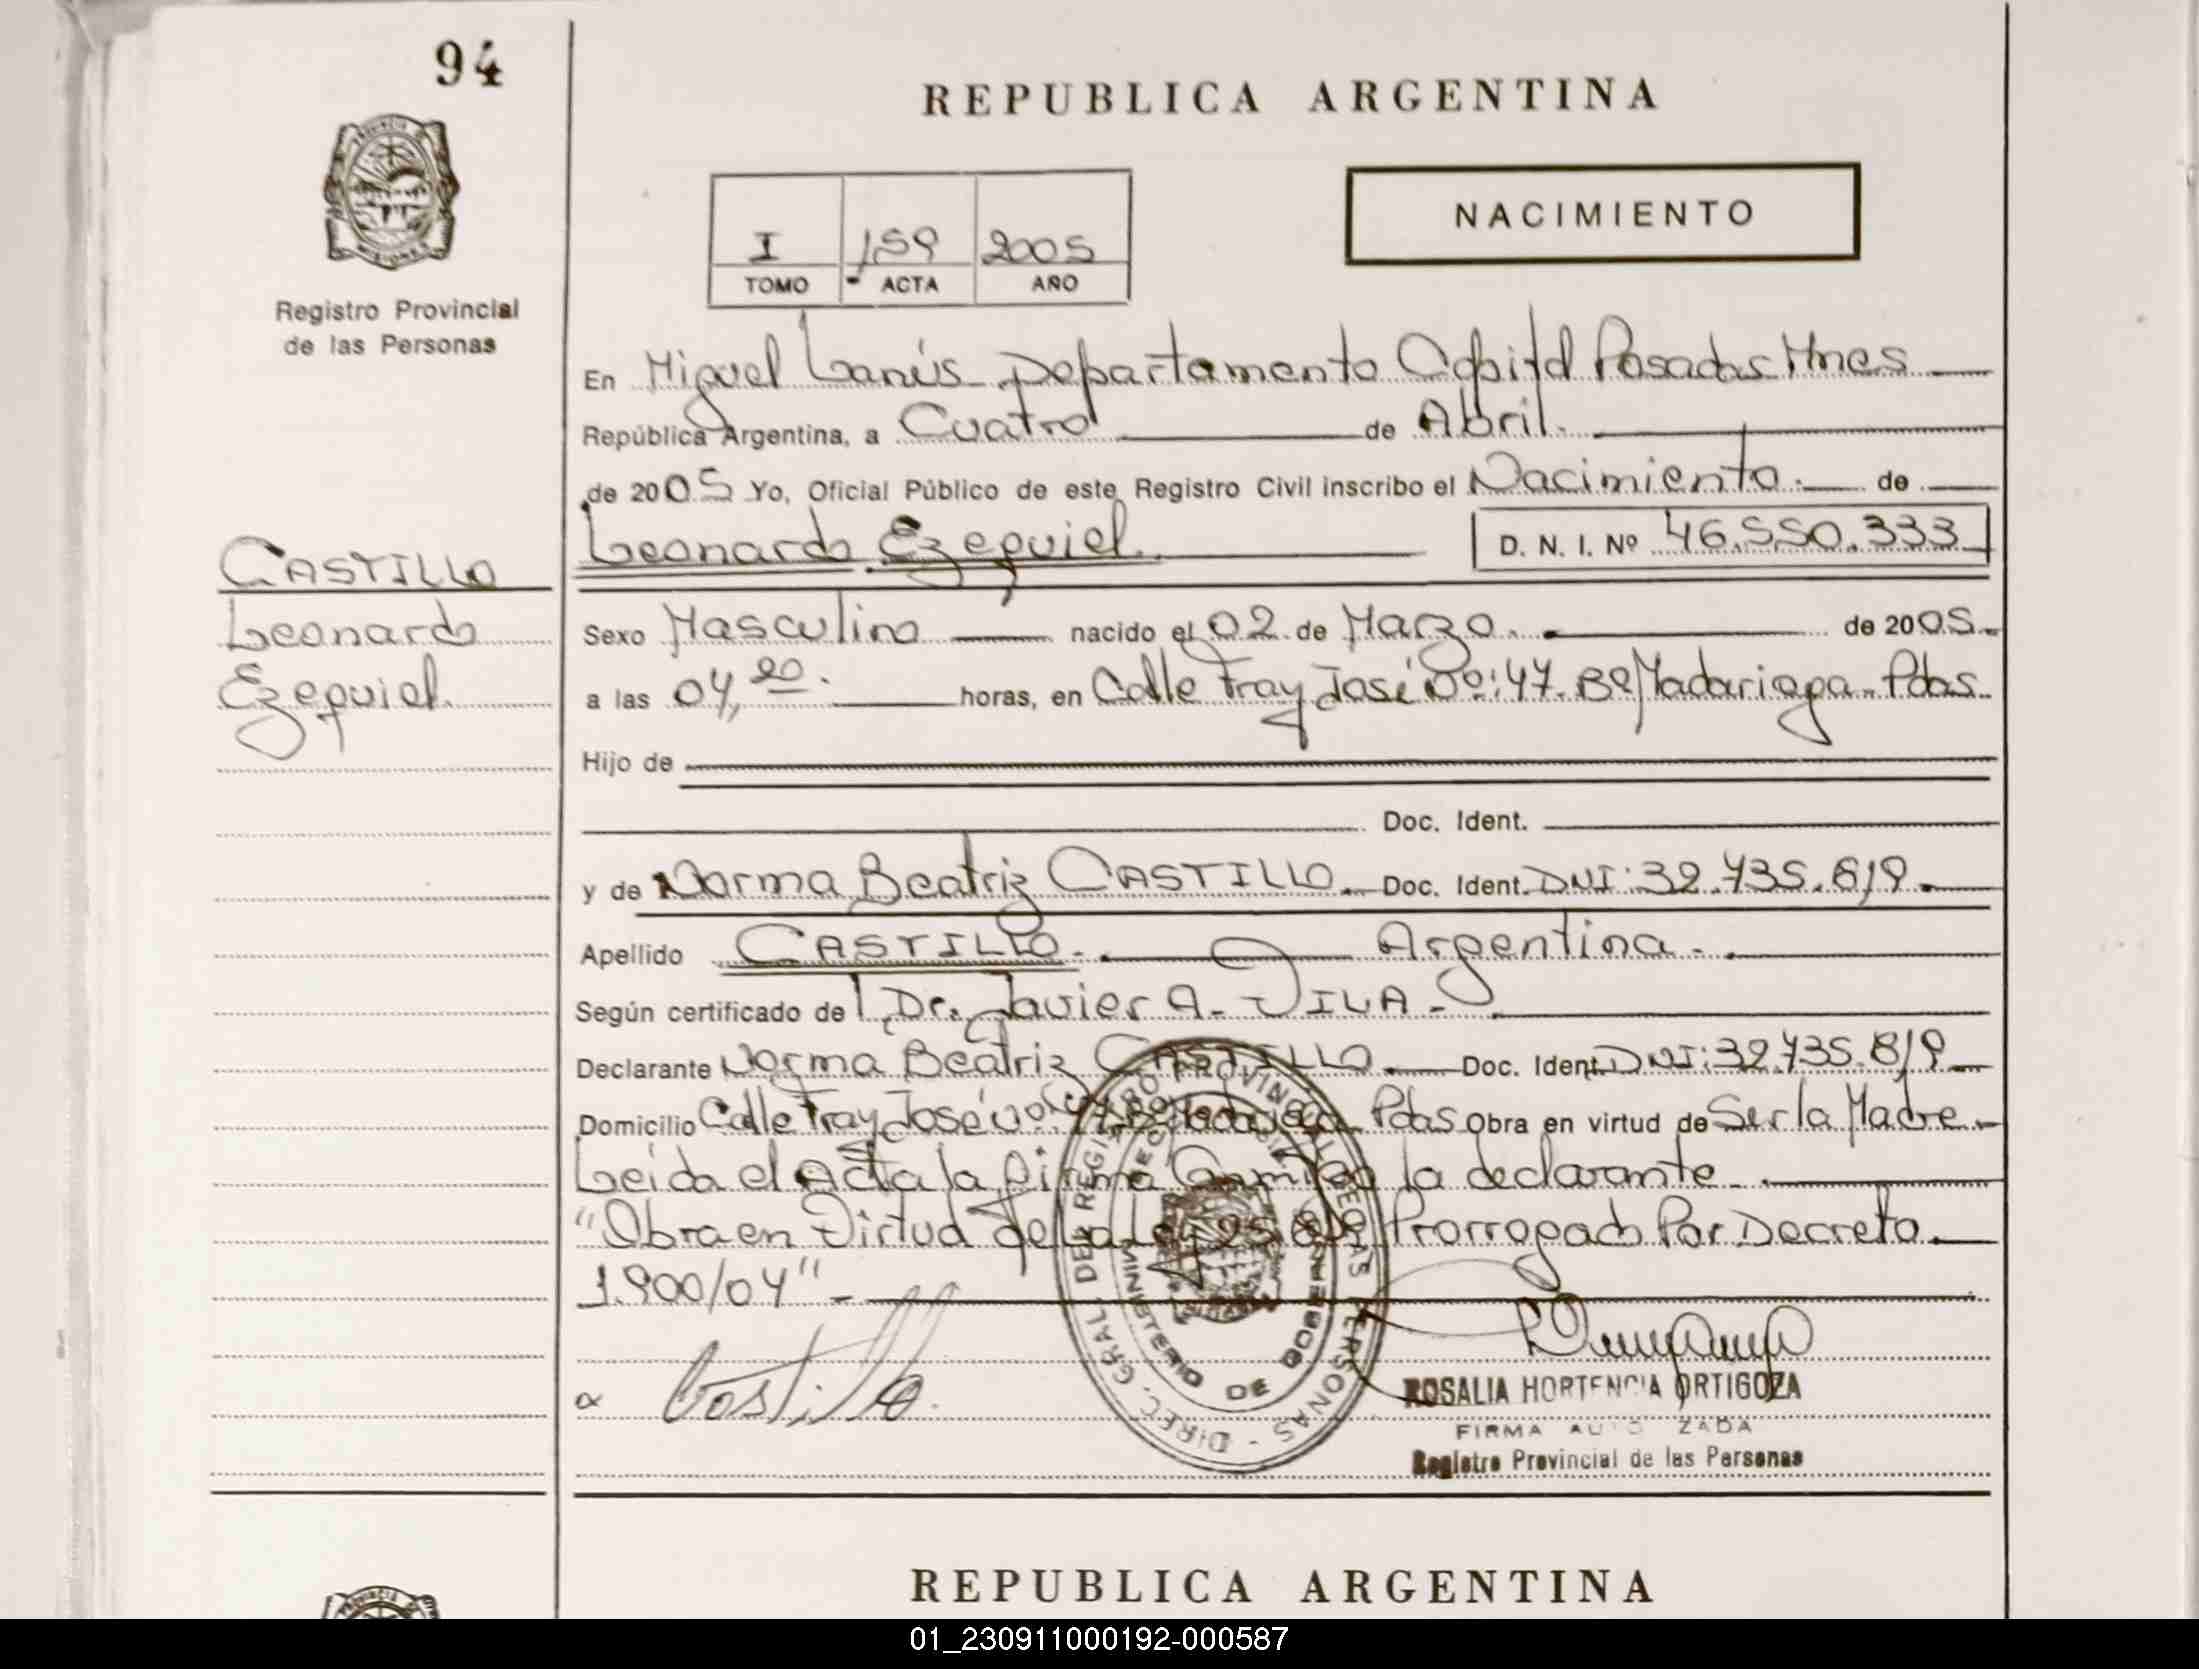 94
REPUBLICA ARGENTINA
PROVINCIA DE
MISIONES
Registro Provincial
de las Personas
I 159 2005
TOMO ACTA AÑO
NACIMIENTO
En Miguel Lanús Departamento Capital Posadas Mnes
República Argentina, a Cuatro de Abril.
de 2005 Yo, Oficial Público de este Registro Civil inscribo el Nacimiento. de
Leonardo Ezequiel. D. N. I. Nº 46.550.333
CASTILLO
Leonardo
Ezequiel.
Sexo Masculino nacido el 02 de Marzo. de 2005.
a las 04,20. horas, en Calle Fray José Nº: 47. Bº Madariaga. Pdas.
Hijo de
Doc. Ident.
y de Norma Beatriz CASTILLO. Doc. Ident. DNI: 32.735.819.
Apellido CASTILLO. Argentina.
Según certificado de Dr. Javier A. VILA.
Declarante Norma Beatriz CASTILLO. Doc. Ident. DNI: 32.735.819
Domicilio Calle Fray José Nº: 47. Bº Madariaga Pdas Obra en virtud de Ser la Madre.
Leida el Acta la Firma Conmigo la declarante.
"Obra en Virtud de la Ley 25.819 Prorrogado Por Decreto.
1.900/04"
DIREC. GRAL. DEL REGISTRO PROVINCIAL DE LAS PERSONAS
MINISTERIO DE GOBIERNO
Castillo.
ROSALIA HORTENCIA ORTIGOZA
FIRMA AUTO ZADA
Registro Provincial de las Personas
REPUBLICA ARGENTINA
01_230911000192-000587